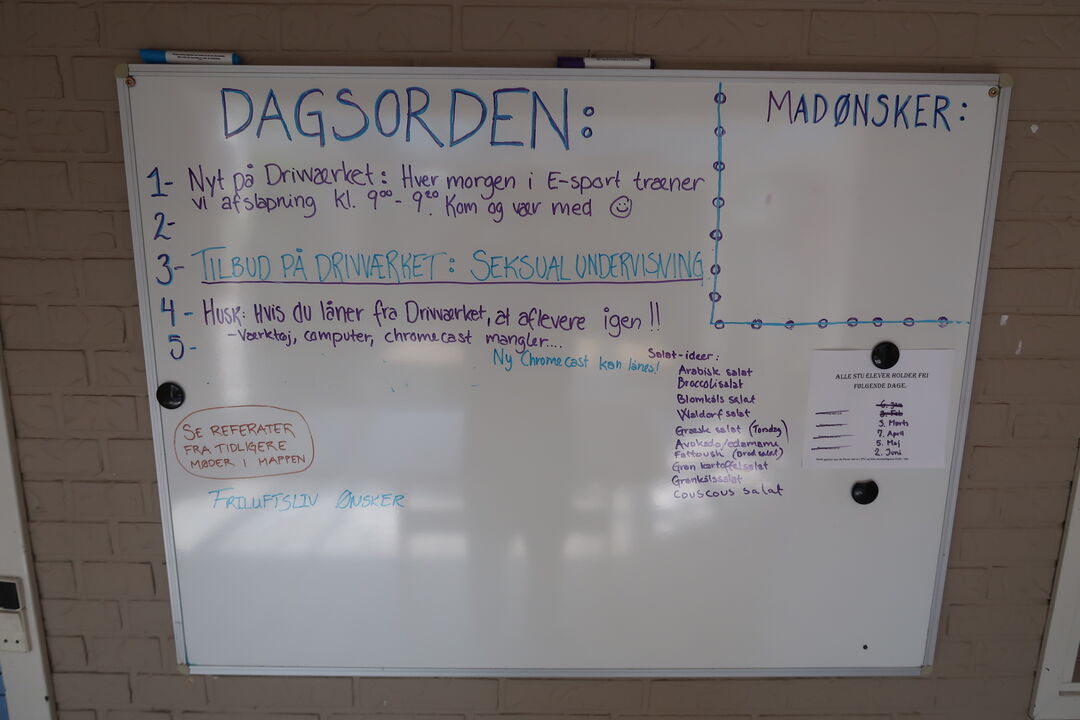 DAGSORDEN:
1- Nyt på Drivværket: Hver morgen i E-sport træner
vi afslapning kl. 9⁰⁰- 9²⁰. Kom og vær med ☺
2-
3- TILBUD PÅ DRIVVÆRKET: SEKSUALUNDERVISNING
4- HUSK: Hvis du låner fra Drivværket, at aflevere igen !!
-Værktøj, computer, chromecast mangler....
5-
Ny Chromecast kan lånes!
SE REFERATER
FRA TIDLIGERE
MØDER I MAPPEN
FRILUFTSLIV ØNSKER
MADØNSKER:
Salat-ideer:
Arabisk salat
Broccolisalat
Blomkåls salat
Waldorf salat
Græsk salat (Torsdag)
Avokado/edamame
Fattoush (Brød salat)
Grøn kartoffelsalat
Grønkålssalat
couscous salat
ALLE STU ELEVER HOLDER FRI
FØLGENDE DAGE.
6. Jan
3. Feb
3. Marts
7. April
5. Maj
2. Juni